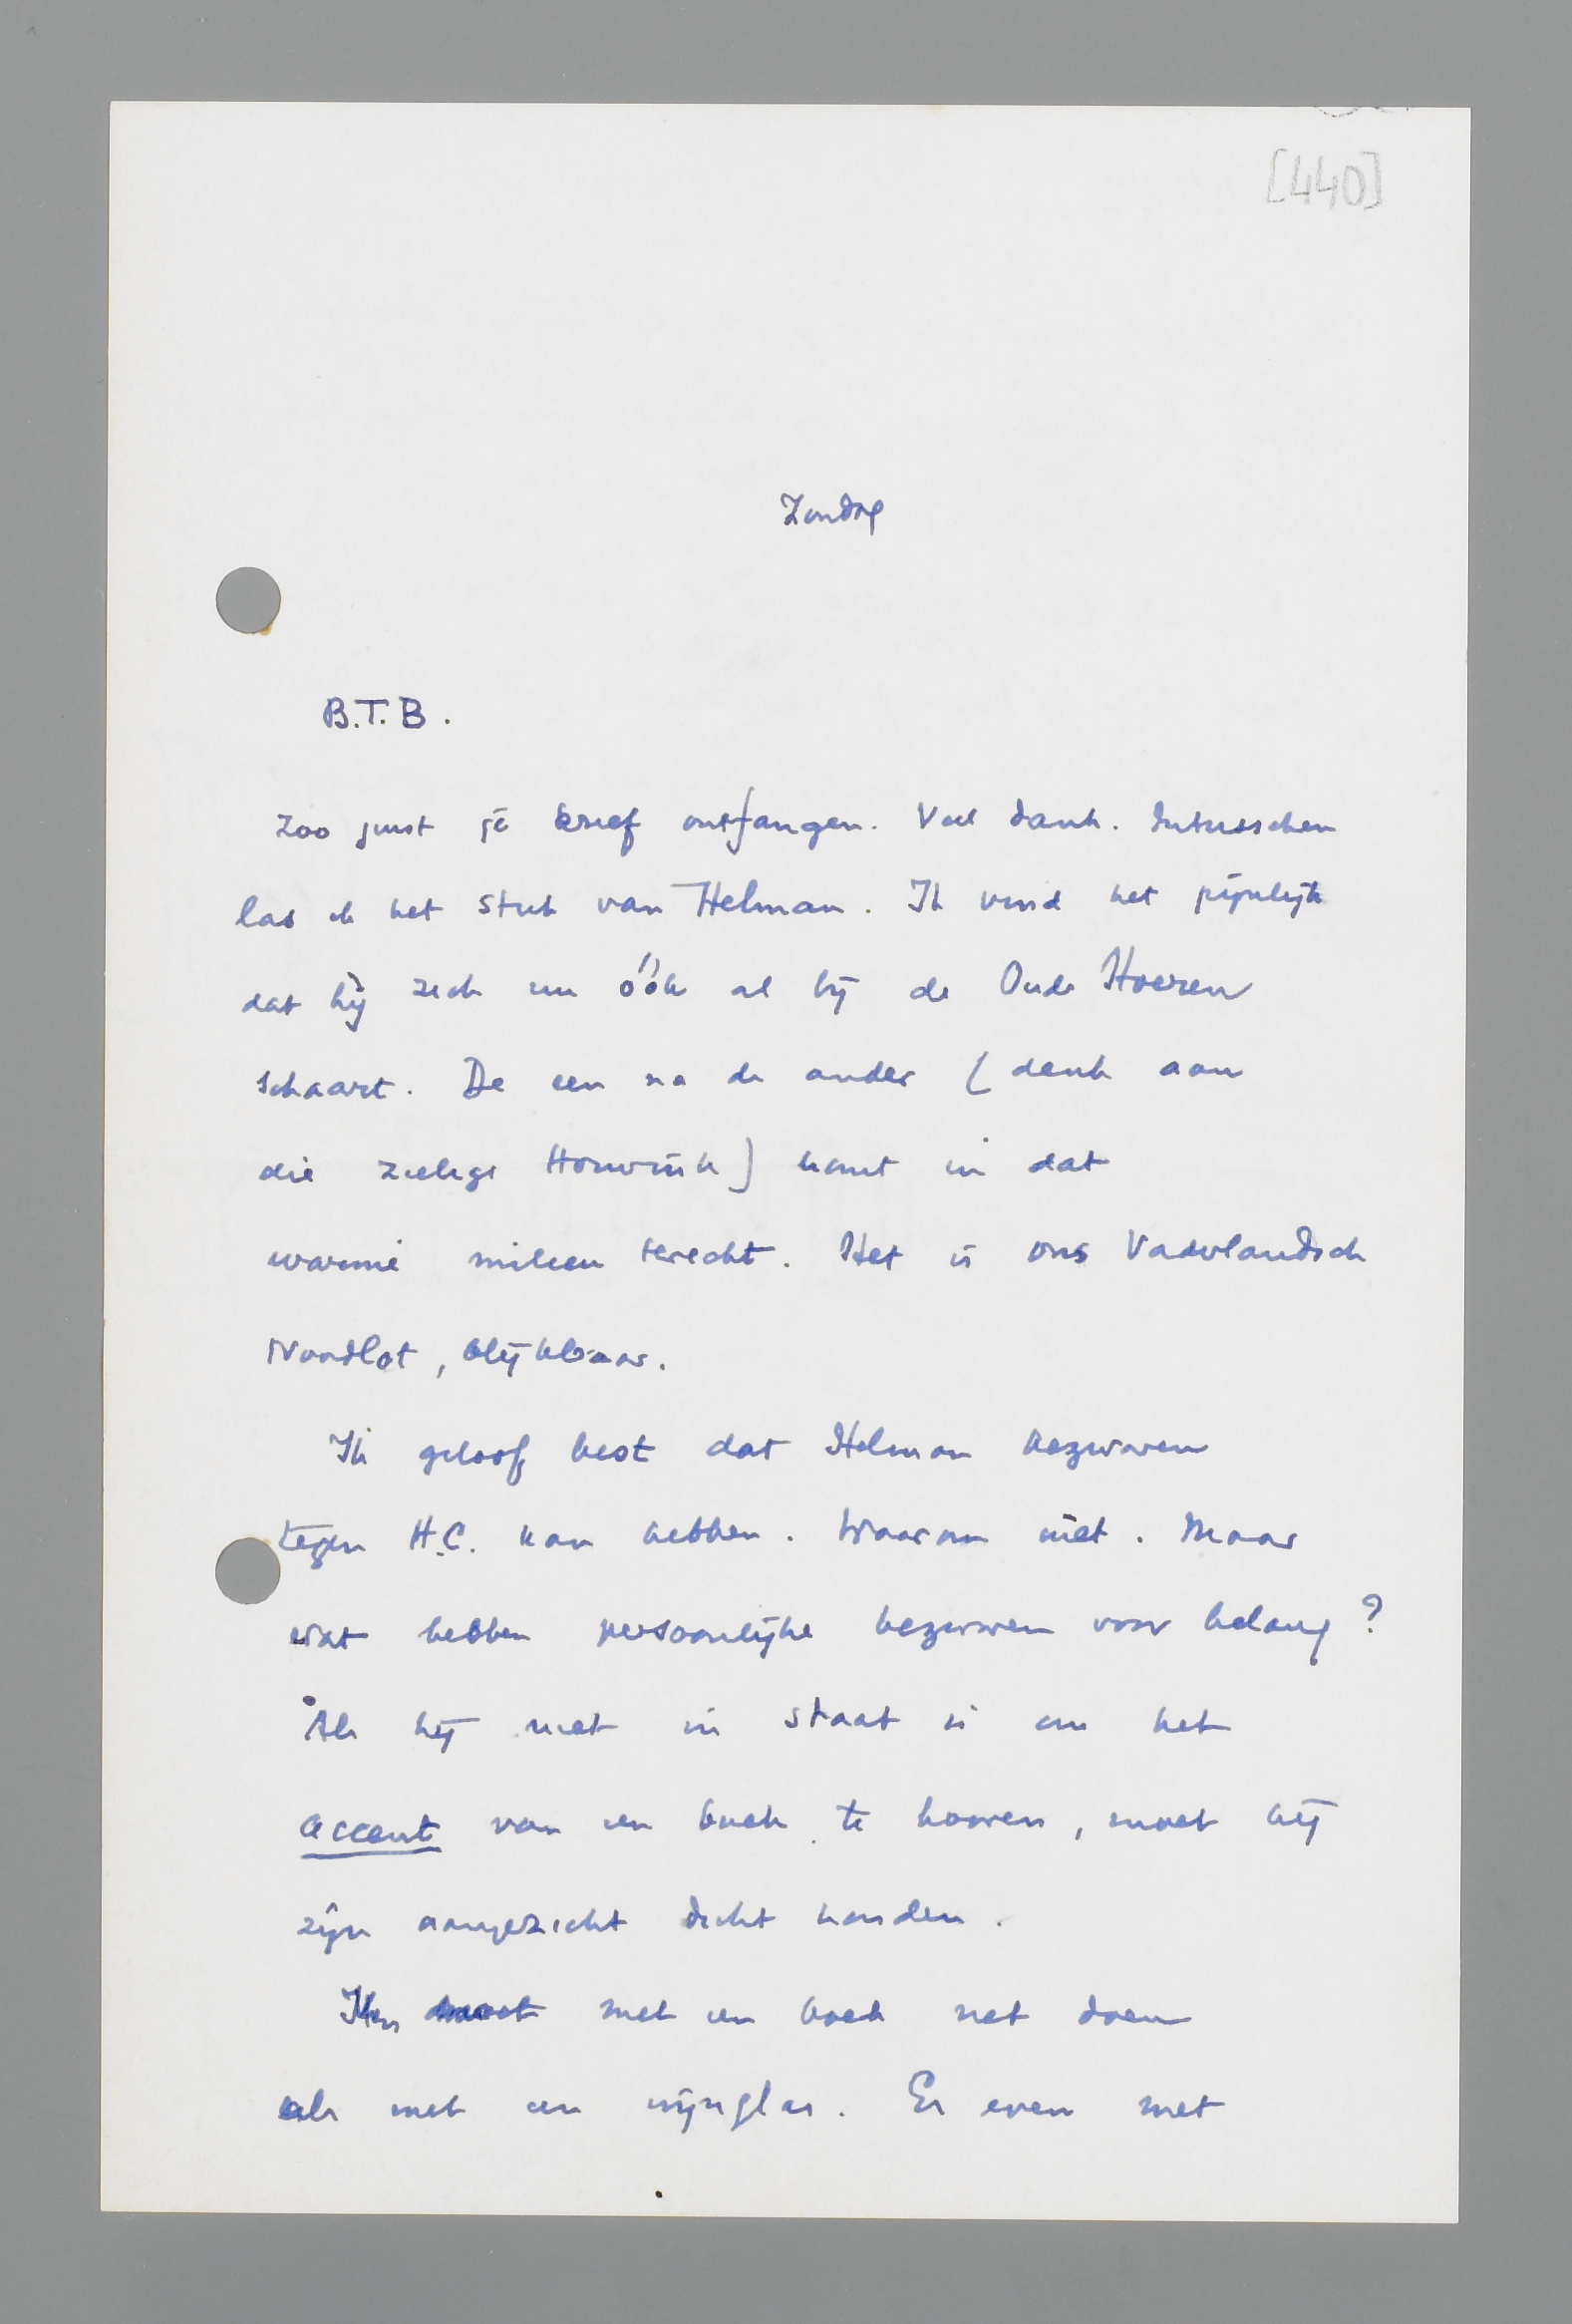 [440]
Zondag
B.T.B.
Zoo juist je brief ontfangen. Veel dank. Intusschen
las ik het stuk van Helman. Ik vind het pijnlijk
dat hij zich nu óók al bij de Oude Hoeren
schaart. De een na de ander (denk aan
die zielige Houwink) komt in dat
warme milieu terecht. Het is ons Vaderlandsch
Noodlot, blijkbaar.
Ik geloof best dat Helman bezwaren
tegen H.C. kan hebben. Waarom niet. Maar
wat hebben persoonlijke bezwaren voor belang?
Als hij niet in staat is om het
accent van een boek te hooren, moet hij
zijn aangezicht dicht houden.
Men moet met een boek net doen
als met een wijnglas. Er even met